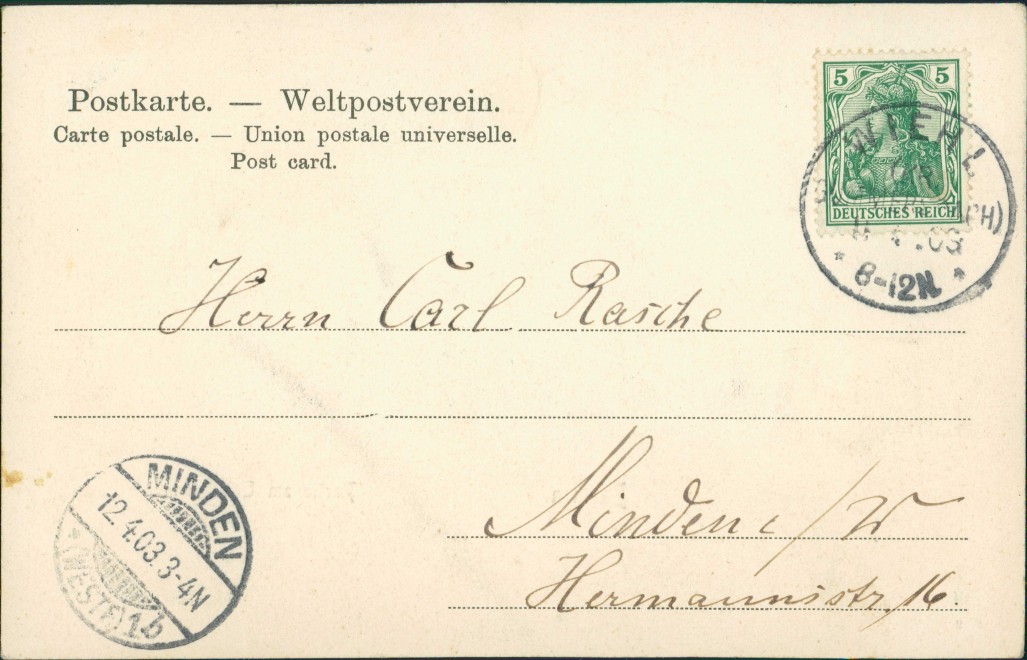 Postkarte. — Weltpostverein.
Carte postale. — Union postale universelle.
Post card.
5 5
DEUTSCHES REICH
WIEHL
4 .03
* 8-12N *
Herrn Carl Rasche
Minden i/W
Hermannstr. 16.
MINDEN
12.4.03.3-4N
* (WESTF) 1b